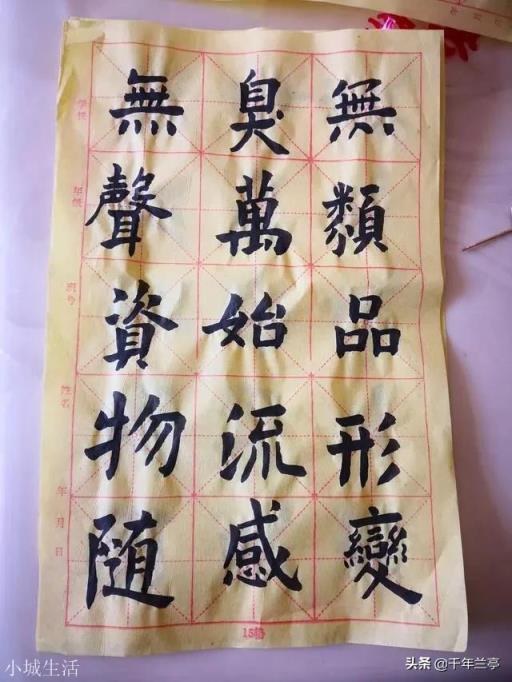 無臭無
聲萬類
資始品
物流形
随感變
学校
年级
姓名
年月日
15格
小城生活
头条@千年兰亭